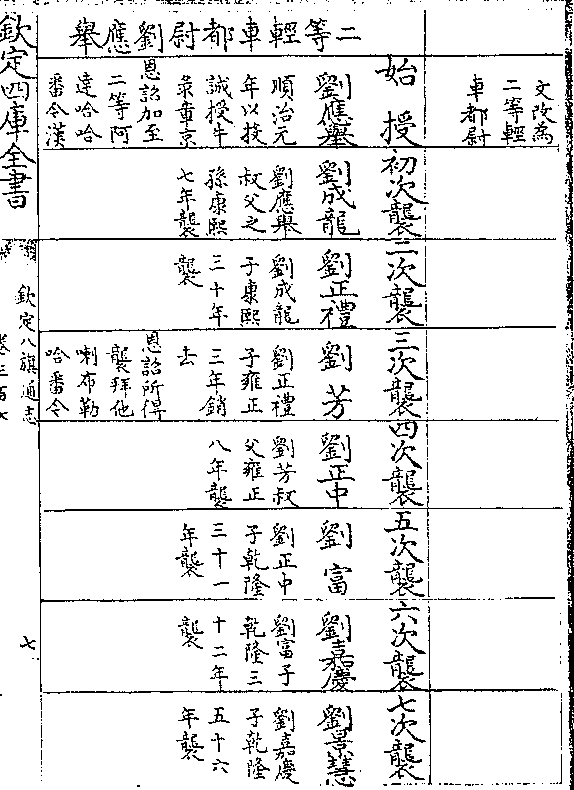 文改為
二等輕
車都尉
二等輕車都尉劉應舉
始授
劉應舉
順治元
年以投
誠授牛
彔章京
恩詔加至
二等阿
達哈哈
番令漢
初次襲
劉成龍
劉應舉
叔父之
孫康熙
七年襲
二次襲
劉正禮
劉成龍
子康熙
三十年
襲
三次襲
劉芳
劉正禮
子雍正
三年銷
去
恩詔所得
襲拜他
喇布勒
哈番令
四次襲
劉正中
劉芳叔
父雍正
八年襲
五次襲
劉富
劉正中
子乾隆
三十一
年襲
六次襲
劉嘉慶
劉富子
乾隆三
十二年
襲
七次襲
劉景慧
劉嘉慶
子乾隆
五十六
年襲
欽定四庫全書
欽定八旗通志
七